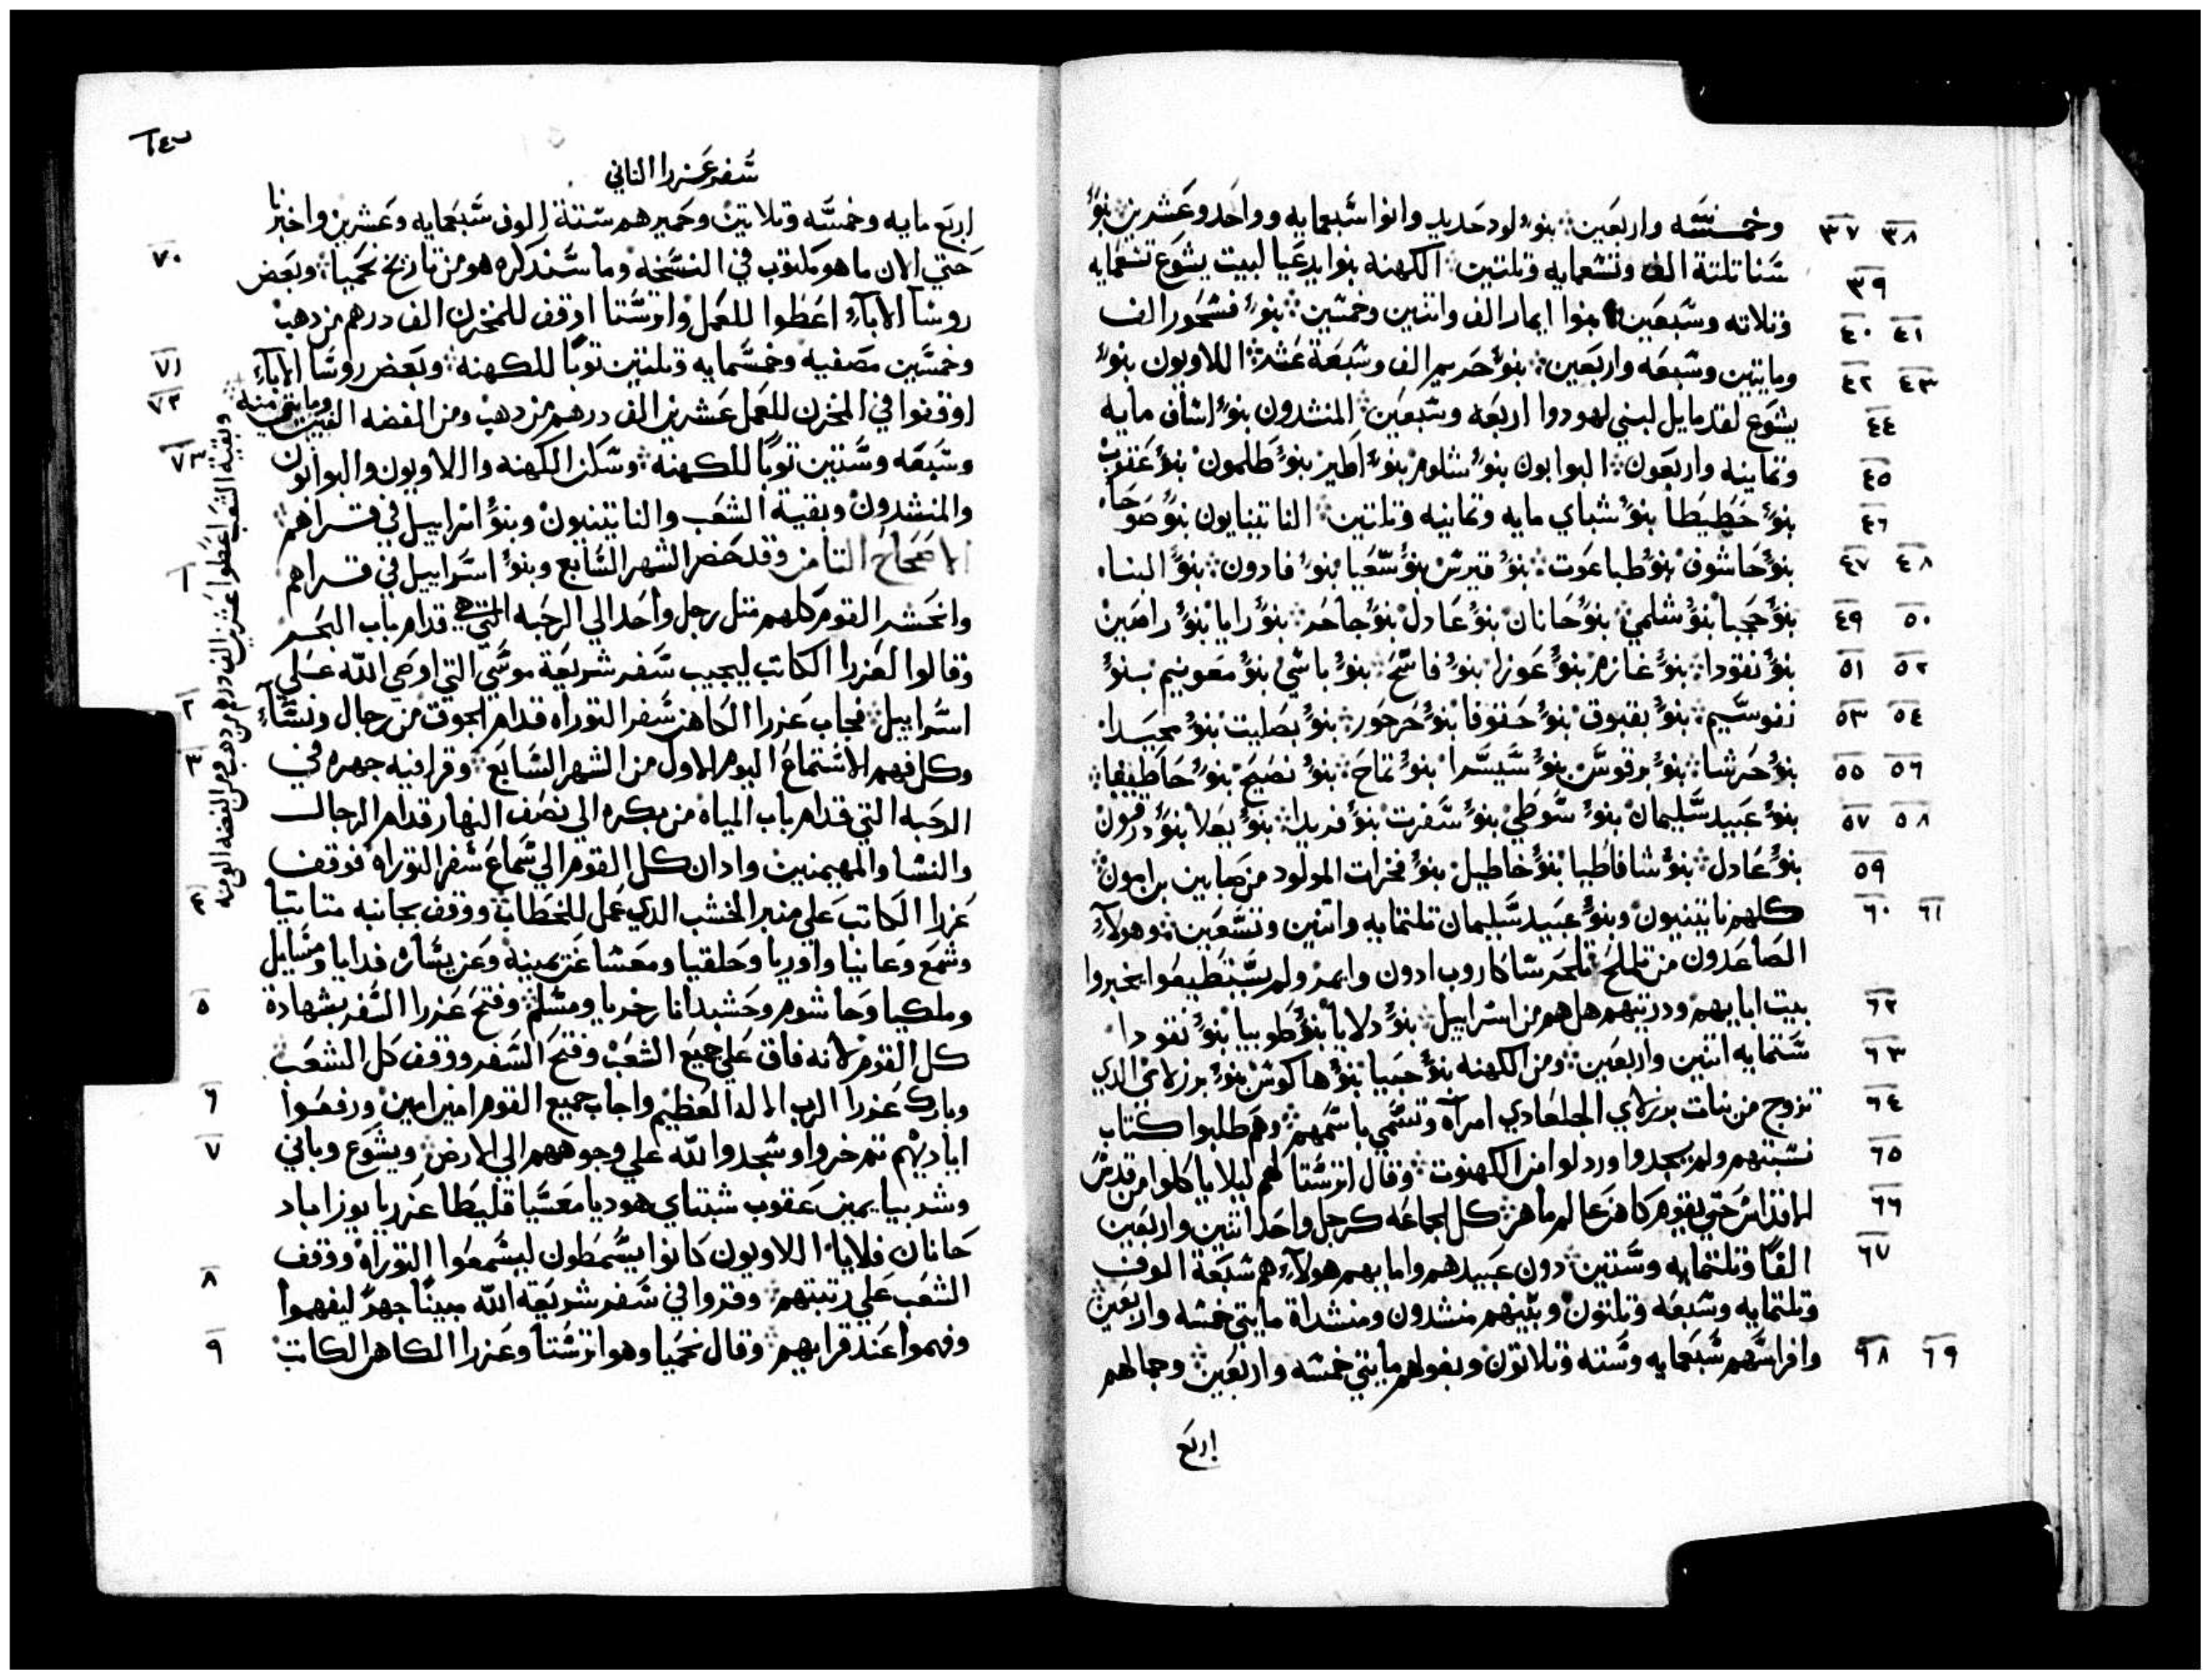 ٣٧ ٣٨ وخمسه واربعين بنوء لود حديد وانوا سبعمايه وواحد وعشرين بنوء
٣٩ سنا تلتة الف وتسعمايه وتلتين الكهنه بنوا يدعيا لبيت يشوع تسعمايه
٤٠ ٤١ وتلاته وسبعين بنوا ايمار الف واتنين وخمسين بنوء فسحور الف
٤٢ ٤٣ ومايتين وسبعه واربعين بنوء حريم الف وسبعة عشر اللاويون بنوء
٤٤ يشوع لقدمايل لبني لهودوا اربعه وسبعين المنشدون بنوء اساف مايه
٤٥ وتمانيه واربعون البوابون بنوء شلوم بنوء اطير بنوء طلمون بنوء عقوب
٤٦ بنوء حطيطا بنوء شباي مايه وتمانيه وتلتين الناتينايون بنوء صوحا
٤٧ ٤٨ بنوء حاشوف بنوء طباعوت بنوء قيرس بنوء سعيا بنوء فادون بنوء البنا
٤٩ ٥٠ بنوء حجبا بنوء شلمي بنوء حانان بنوء عادل بنوء جاحر بنوء رايا بنوء راصين
٥١ ٥٢ بنوء نقودا بنوء غازم بنوء عوزا بنوء فاسح بنوء باسي بنوء معونيم بنوء
٥٣ ٥٤ نفوسيم بنوء بقبوق بنوء حقوفا بنوء حرحور بنوء بصليت بنوء محيدا
٥٥ ٥٦ بنوء حرشا بنوء برقوس بنوء سيسرا بنوء تماح بنوء نصيح بنوء حاطيفا
٥٧ ٥٨ بنوء عبيد سليمان بنوء سوطي بنوء سفرت بنوء فريدا بنوء يعلا بنوء درقون
٥٩ بنوء عادل بنوء شافاطيا بنوء خاطيل بنوء فخرات المولود من صابين بن امون
٦٠ ٦١ كلهم ناتينيون وبنوء عبيد سليمان تلتمايه واتنين وتسعين وهولاء
الصاعدون من تلملح تلحرشا كاروب ادون وايمر ولم يستطيعوا يخبروا
٦٢ بيت اباييهم ودريتهم هل هم من اسراييل بنوء دلايا بنوء طوبيا بنوء نقودا
٦٣ ستمايه اتنين واربعين ومن الكهنه بنوء حبيا بنوء هاكوس بنوء برزلاي الدي
٦٤ تزوج من بنات برزلاي الجلعادي امراه وتسمي باسمهم وهم طلبوا كتاب
٦٥ نسبتهم ولم يجدوا وردلوا من الكهنوت وقال اترستا لهم ليلا ياكلوا من قدس
٦٦ الاقداس حتي يقوم كاهن عالم ماهر كل الجماعه كرجل واحد اتنين واربعين
٦٧ الفا وتلتمايه وستين دون عبيدهم وامايهم هولاء هم سبعة الوف
وتلتمايه وسبعه وتلتون وبينهم منشدون ومنشداة مايتي خمسه واربعين
٦٨ ٦٩ وافراسهم سبعمايه وسته وتلاتون وبغولهم مايتي خمسه واربعين وجمالهم
اربع
سفر عزرا التاني
اربع مايه وخمسه وتلاتين وحميرهم ستة الوف سبعمايه وعشرين واخبرنا
٧٠ حتي الان ما هو مكتوب في النسخه وما سندكره هو من تاريخ نحميا وبعض
روسا الاباء اعطوا للعمل واترستا اوقف للمخزن الف درهم من دهب
٧١ وخمسين مصفيه وخمسمايه وتلتين توبا للكهنه وبعض روسا الاباء
٧٢ اوقفوا في المخزن للعمل عشرين الف درهم من دهب ومن الفضه الفين ومايتي منيه
وبقية الشعب اعطوا عشرين الف درهم من دهب ومن الفضه الفي منيه
٧٣ وسبعه وستين توبا للكهنه وسكن الكهنه واللاويون والبوابون
والمنشدون وبقية الشعب والناتينيون وبنوء اسراييل في قراهم
١ الاصحاح التامن وقد حضر الشهر السابع وبنوء اسراييل في قراهم
وانحشر القوم كلهم متل رجل واحد الي الرحبه التي هي قدام باب البحر
وقالوا لعزرا الكاتب ليجيب سفر شريعة موسي التي اوصي الله علي
٢ اسراييل فجاب عزرا الكاهن سفر التوراه قدام الجوق من رجال ونساء
٣ وكل فهم الاستماع اليوم الاول من الشهر السابع وقرا فيه جهره في
الرحبه التي قدام باب المياه من بكره الي نصف النهار قدام الرجال
والنسا والمهيمنين وادان كل القوم الي سماع سفر التوراه فوقف
٤ عزرا الكاتب علي منبر الخشب الدي عمل للخطاب ووقف بجانبه متاتيا
وشمع وعانيا واوريا وحلقيا ومعشا عن يمينه وعن يساره فدايا ومسايل
٥ وملكيا وحاشوم وحشبدانا زخريا ومسلم وفتح عزرا السفر بشهادة
كل القوم لانه فاق علي جميع الشعب وفتح السفر ووقف كل الشعب
٦ وبارك عزرا الرب الاله العظيم واجاب جميع القوم امين امين ورفعوا
٧ اياديهم تم خروا وسجدوا لله علي وجوههم الي الارض ويشوع وباني
وشربيا يمين عقوب شبتاي هوديا معسيا قليطا عزريا يوزاباد
حانان فلايا اللاويون كانوا يسمطون ليسمعوا التوراه ووقف
٨ الشعب علي رتبتهم وقروا في سفر شريعة الله مبينا جهرا ليفهموا
٩ وفهموا عند قرايهم وقال نحميا وهو اترستا وعزرا الكاهن الكاتب